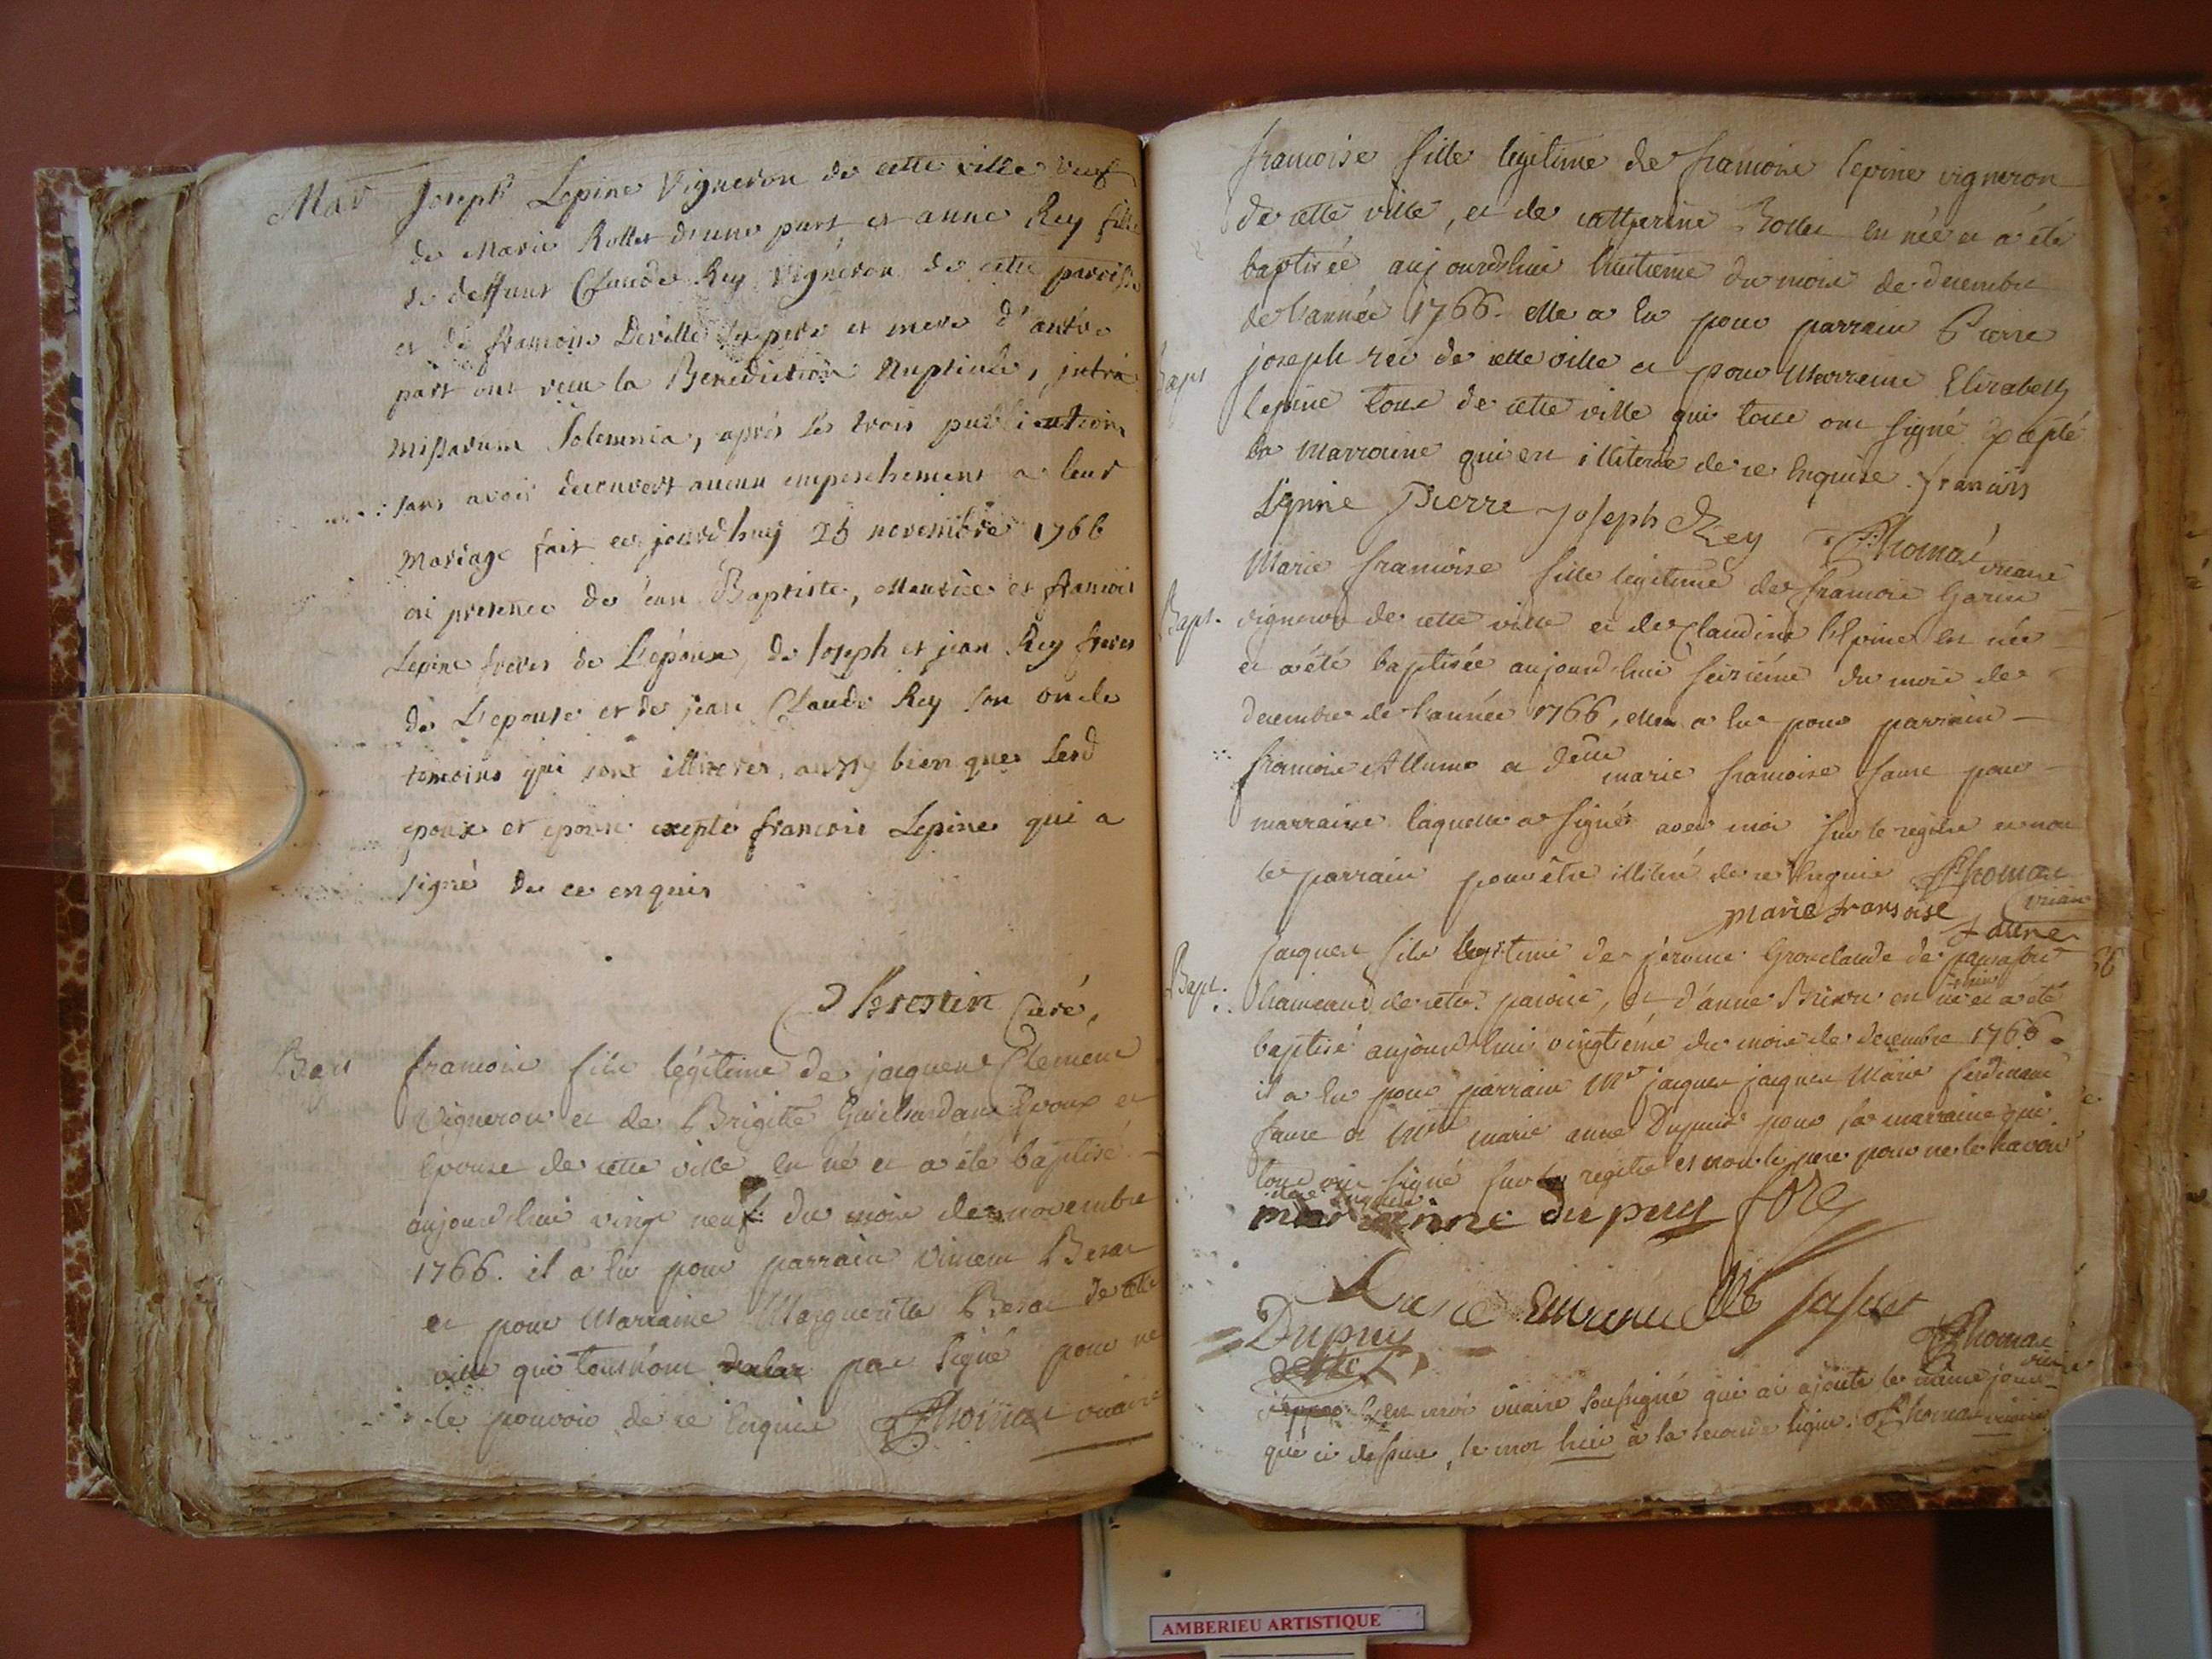 Mar Joseph Lepine Vigneron de cette ville veuf
de Marie Rollet d'une part et anne Rey fille
de deffunt Claude Rey Vigneron de cette paroisse
et de francoise Deville ses pere et mere d'autre
part ont recu la Benediction Nuptiale, intra
missarum Solemnia, aprés les trois publications
sans avoir decouvert aucun empeschement a leur
mariage fait ce jourd'huy 25 novembre 1766
en presence de jean Baptiste, Maurice et francois
Lepine freres de L'epoux, de Joseph et jean Rey freres
de L'epouse et de jean Claude Rey son oncle
temoins qui sont illiterés, aussy bien que lesd
epoux et epouse excepté francois Lepine qui a
signé de ce enquis
Brestin Curé,
Bap francois fils légitime de jacques Clement
Vigneron et de Brigitte époux et
épouse de cette ville est né et a été baptisé
aujourdhui vingt neuf du mois de novembre
1766. il a eu pour parrain vincent Besac
et pour Marraine Marguerite Besac de cette
ville qui tous n'ont pas signé pour ne
le pouvoir de ce Enquis Thomas vicaire
francoise fille legitime de francois lepine vigneron
de cette ville, et de catherine Rollet est née et a été
baptisée aujourdhui huitieme du mois de decembre
de l'année 1766. elle a eu pour parrain Pierre
Bapt joseph rei de cette ville et pour Marraine Elizabeth
lepine tous de cette ville qui tous ont signé Excepté
la Marraine qui est illiterée de ce Enquise. francois
Lepine Pierre Joseph Rey Thomas vicaire
Marie francoise fille legitime de francois Garin
Bapt. vigneron de cette ville et de Claudine lepine est née
et a été baptisée aujourdhui seizième du mois de
decembre de l'année 1766, elle a eu pour parrain
francois Allume et delle marie francoise faure pour
marraine laquelle a signé avec moi sur le registre et non
le parrain pour être illiteré de ce Enquis Thomas
marie fransoise vicaire
faure
jacques fils legitime de jérome Grosclaude de
Bapt. hameau de cette paroisse, et d'anne est né et a été
baptisé aujourdhui vingtiéme du mois de decembre 1766.
il a eu pour parrain Mr jacques jacques Marie ferdinand
faure et Mlle marie anne Dupuis pour sa marraine qui
tous ont signé sur le registre et non le pere pour ne le savoir
de ce Enquis
anne dupuy
Dupuy
Thomas
vicaire
moi vicaire soussigné qui ai ajouté le même jour
que ci dessus, le mot hui à la seconde ligne. Thomas vicaire
AMBERIEU ARTISTIQUE